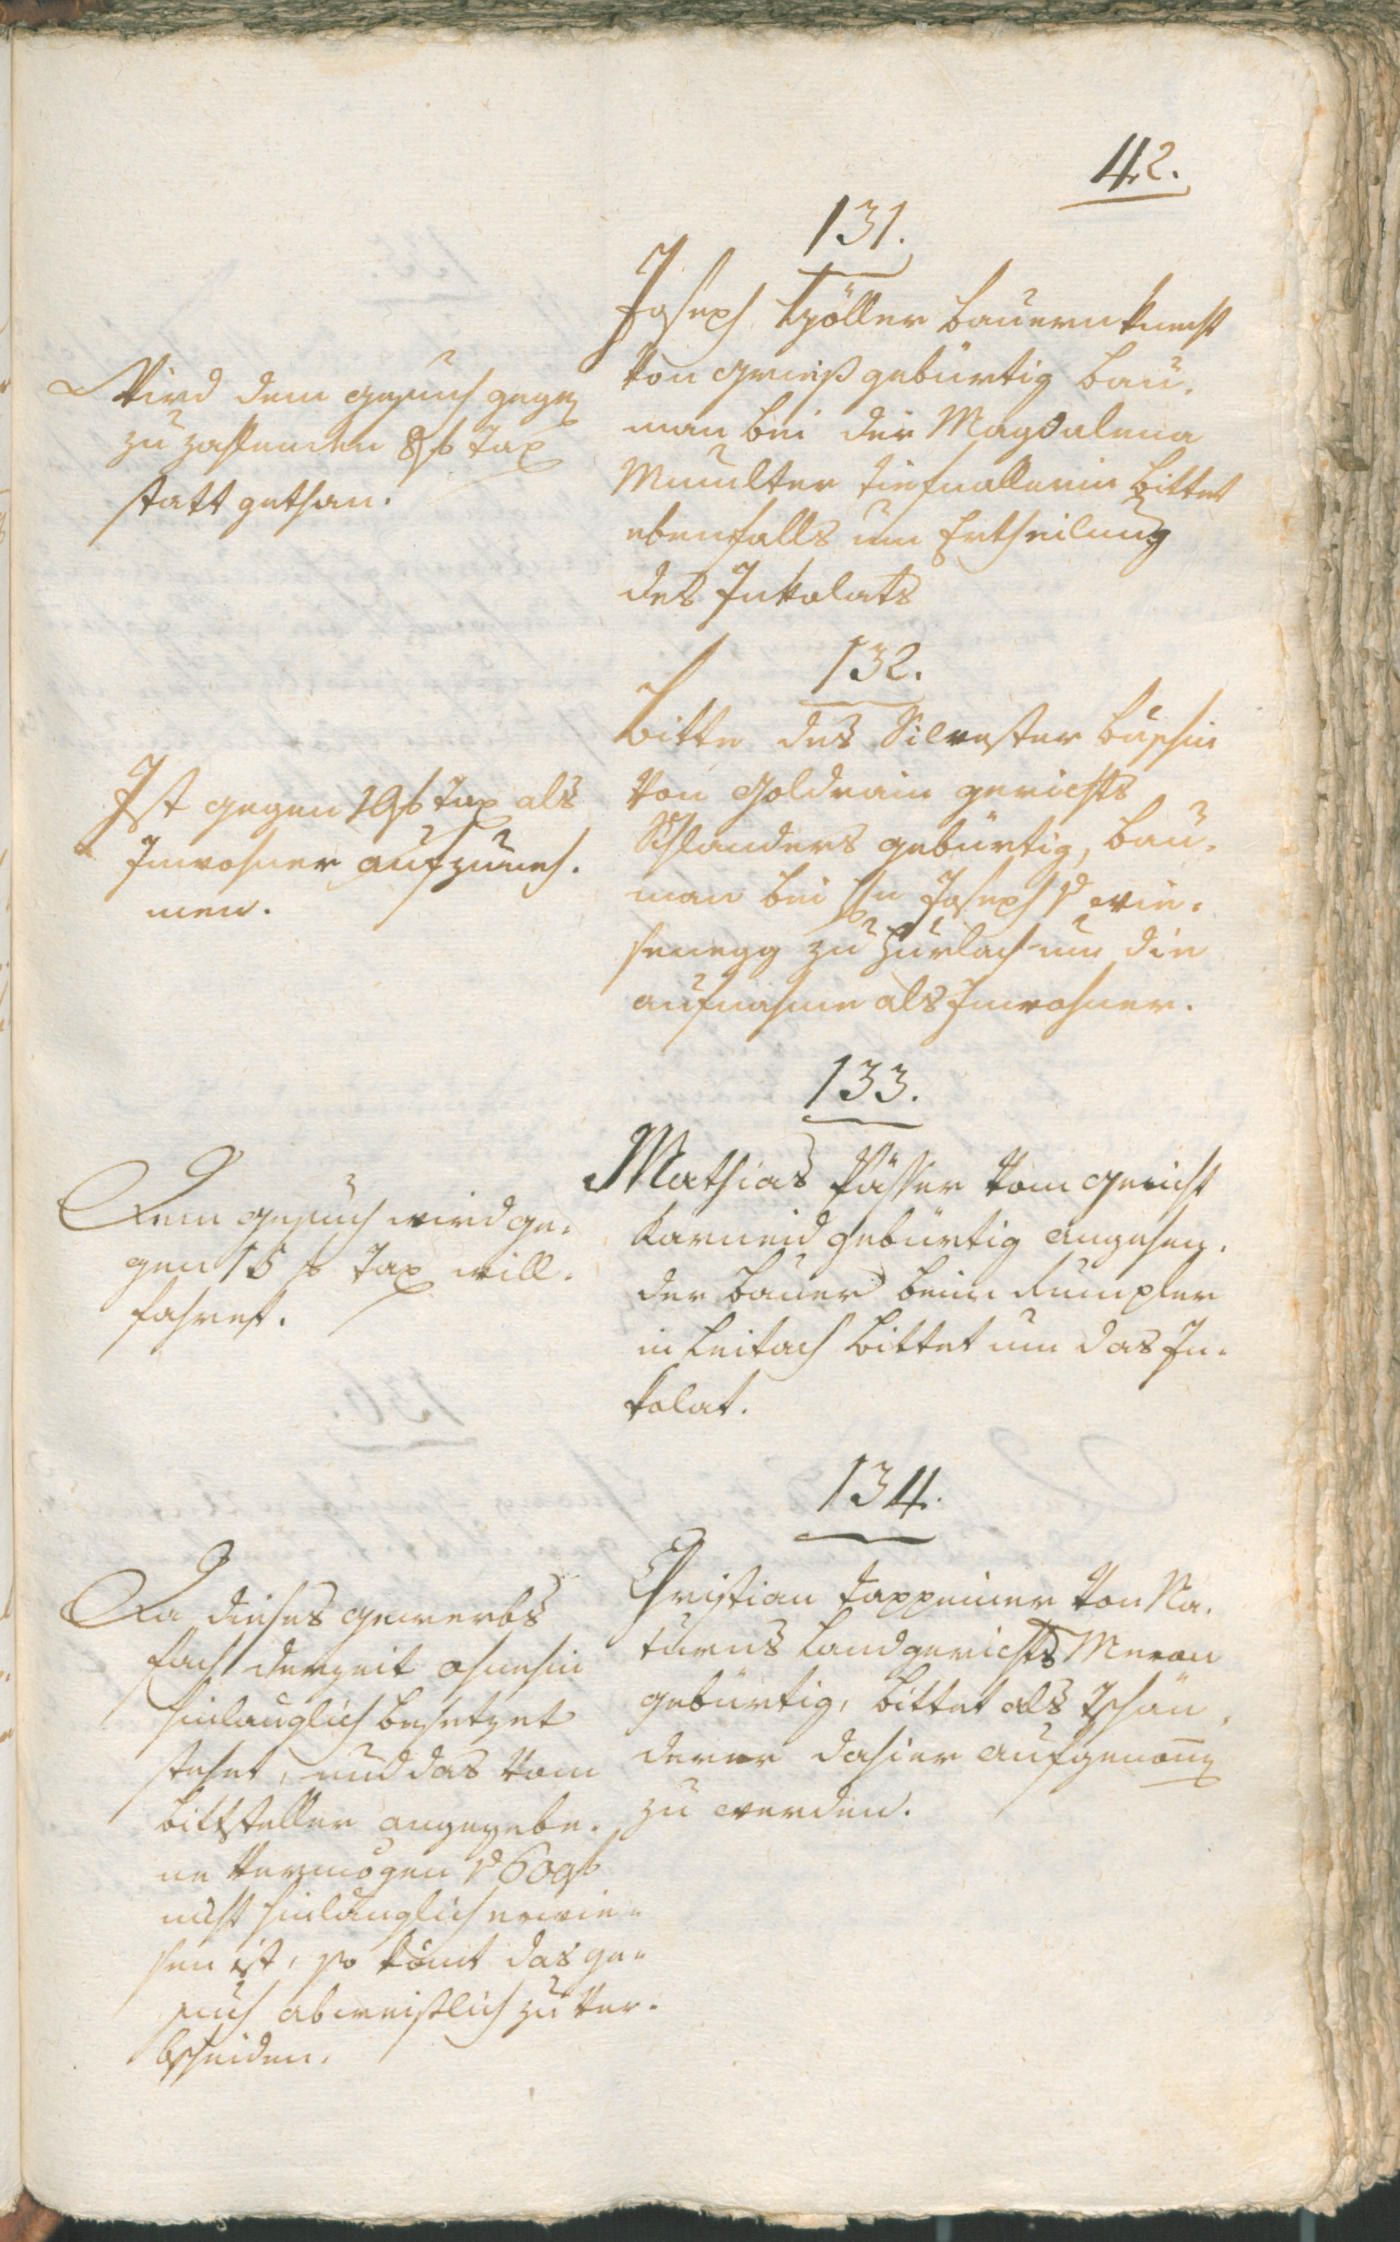 42.
131.
Joseph Spöller Bauernknecht
von Grieß gebürtig Bau-
man bei der Magdalena
Muulter Tiefnallerin bittet
ebenfalls um Ertheilung
des Inkolats
Wird dem Gesuch gegen
zu zahlenden 8 f Tax
statt gethan.
132.
Bitte des Silvester
von Goldrain Gerichts
Schlanders gebürtig, Bau-
man bei Hn Joseph v Wie-
senegg zu Haslach um die
Aufnahme als Inwohner.
Ist gegen 10 f Tax als
Inwohner aufzuneh-
men.
133.
Mathias Passer vom Gericht
Karneid gebürtig angehen-
der Bauer beim Kumpler
in Leitach bittet um das In-
kolat.
Dem Gesuch wird ge-
gen 15 f Tax will-
fahret.
134.
Christian Tappeiner von Na-
turns Landgerichts Meran
gebürtig, bittet als Tschan-
derer dahier aufgenomen
zu werden.
Da dieses Gewerbs
fach derzeit ohnehin
hinlänglich besetzet
stehet, und das vom
Bittsteller angegebe-
ne Vermögen v 600 f
nicht hinlänglich erwie-
sen ist, so kömt das Ge-
such abweißlich zu ver-
bscheiden.